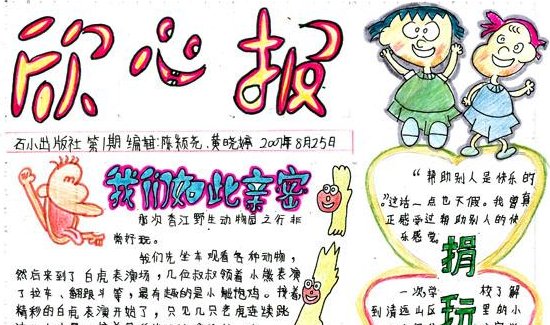 欣心报
石小出版社 第1期 编辑:陈颖 黄晓婷 2007年8月25日
我们如此亲密
首次香江野生动物园之行非
常好玩。
我们先坐车观看各种动物，
然后来到了白虎表演场，几位叔叔领着小熊表演
了拉车、翻跟斗等，最有趣的是小熊 。接着
精彩的白虎表演开始了，只见几只老虎连续跳
“帮助别人是快乐的
。”这话一点也不假。我曾真
正感受过帮助别人的快
乐感觉。
捐
玩
一次学 校了解
到清远山区 里的小